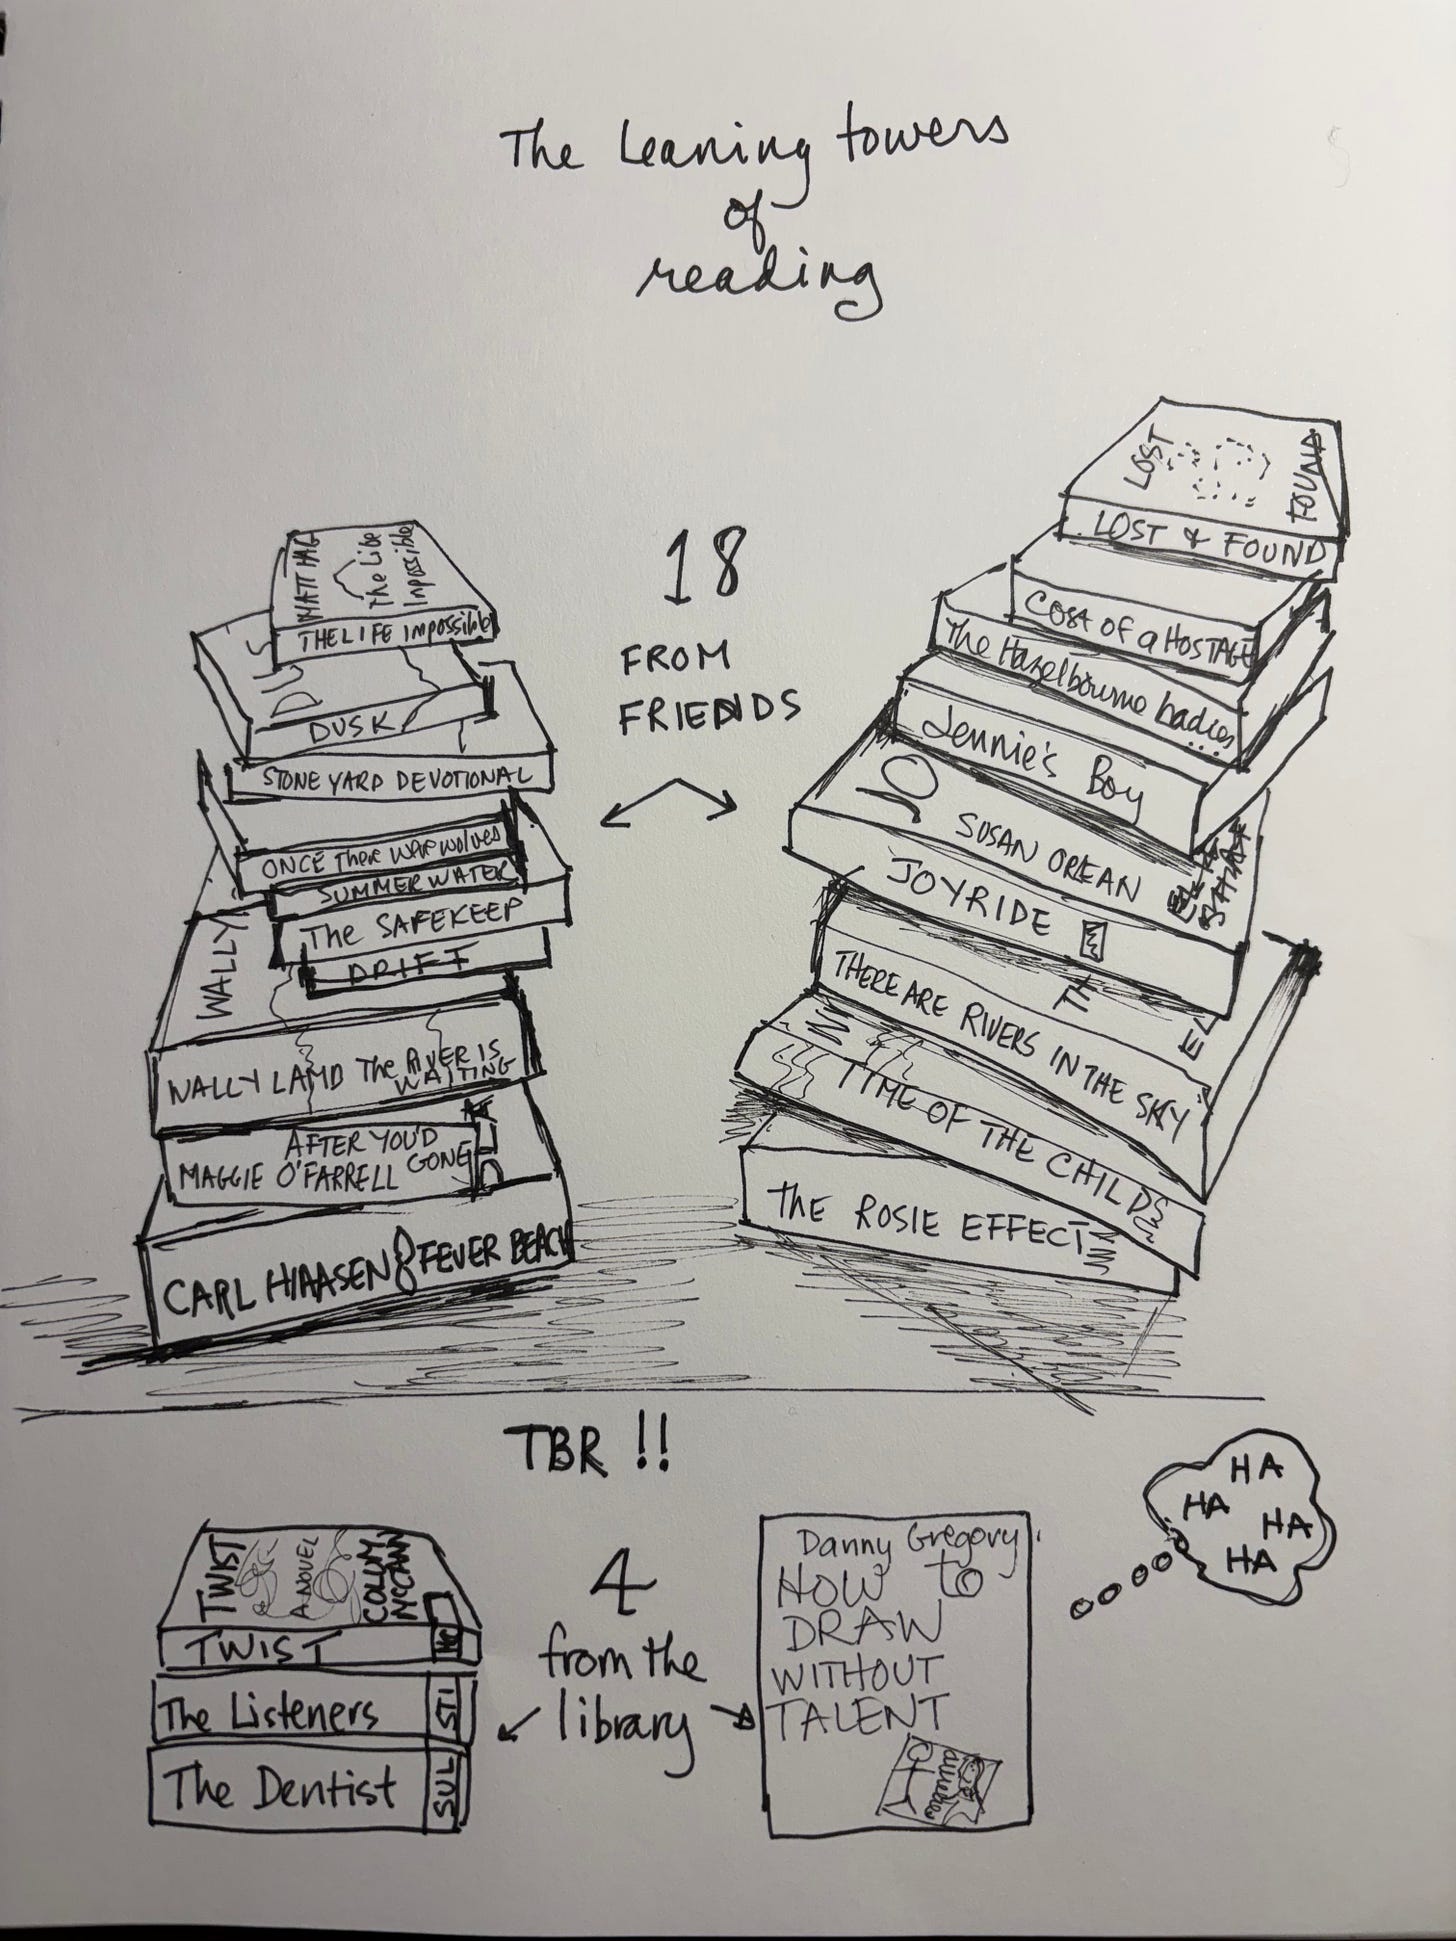 The Leaning towers
of
reading
18
FROM
FRIENDS
MATT HAIG
The Life
Impossible
THE LIFE Impossible
DUS
DUSK
STONE YARD DEVOTIONAL
ONCE There WERE WOLVES
SUMMER WATER
The SAFEKEEP
DRIFT
WALLY
WALLY LAMB The RIVER IS
WAITING
AFTER YOU'D
MAGGIE O'FARRELL GONE
CARL HIAASEN FEVER BEACH
LOST
FOUND
LOST & FOUND
COST OF a HOSTAGE
The Hazelbourne Ladies...
Jennie's Boy
JO
SUSAN ORLEAN
JOYRIDE
TH
EL
THERE ARE RIVERS IN THE SKY
TIME OF THE CHILD
THE ROSIE EFFECT
TBR !!
TWIST
A NOVEL
COLUM
McCANN
TWIST
MC
The Listeners
STI
The Dentist
SUL
4
from the
library
Danny Gregory
HOW to
DRAW
WITHOUT
TALENT
HA
HA
HA
HA